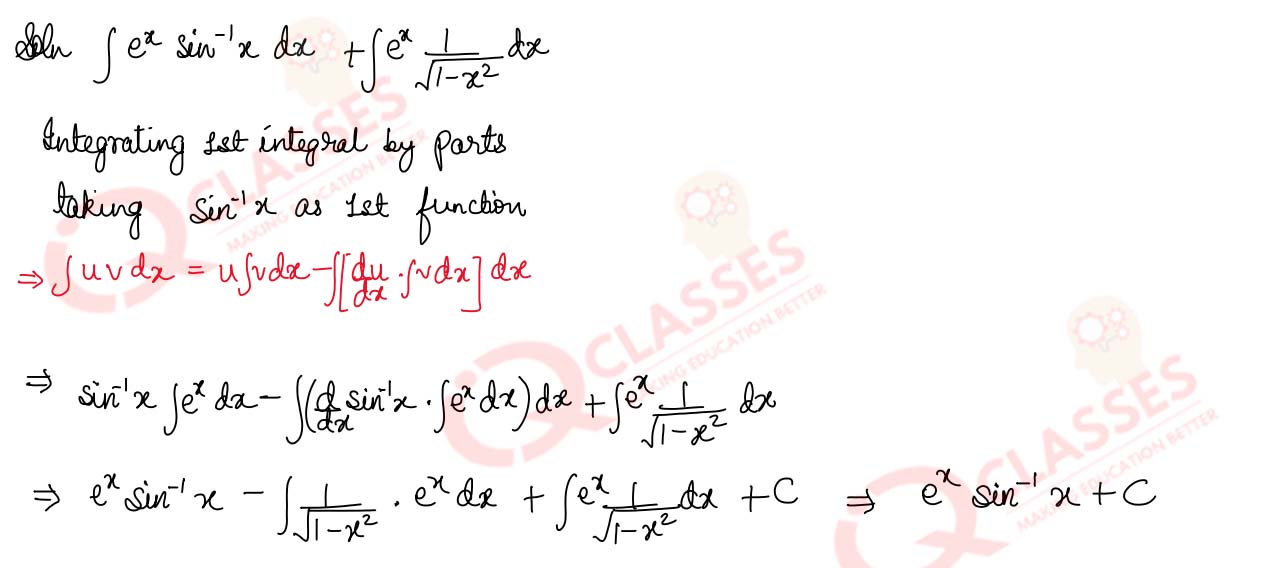 Soln ∫ eˣ sin⁻¹x dx + ∫ eˣ 1/√(1-x²) dx
Integrating 1st integral by parts
taking sin⁻¹x as 1st function
⇒ ∫ u v dx = u ∫ v dx - ∫[du/dx · ∫ v dx] dx
⇒ sin⁻¹x ∫ eˣ dx - ∫(d/dx sin⁻¹x · ∫ eˣ dx) dx + ∫ eˣ 1/√(1-x²) dx
⇒ eˣ sin⁻¹x - ∫ 1/√(1-x²) · eˣ dx + ∫ eˣ 1/√(1-x²) dx + C ⇒ eˣ sin⁻¹x + C
iQ CLASSES
MAKING EDUCATION BETTER
iQ CLASSES
MAKING EDUCATION BETTER
iQ CLASSES
MAKING EDUCATION BETTER